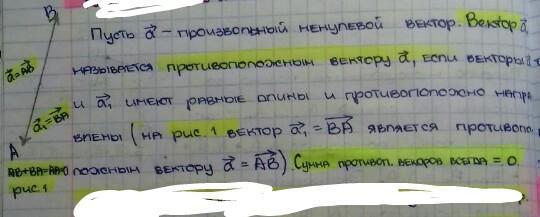 B
Пусть a⃗ - произвольный ненулевой вектор. Вектор a⃗₁
называется противоположным вектору a⃗, если векторы a⃗
и a⃗₁ имеют равные длины и противоположно направ
влены (на рис. 1 вектор a⃗₁ = B͞A является противопо
ложным вектору a⃗ = A͞B). Сумма противоп. векторов всегда = 0.
a⃗ = A͞B
a⃗₁ = B͞A
A
AB+BA=AA=0
рис. 1